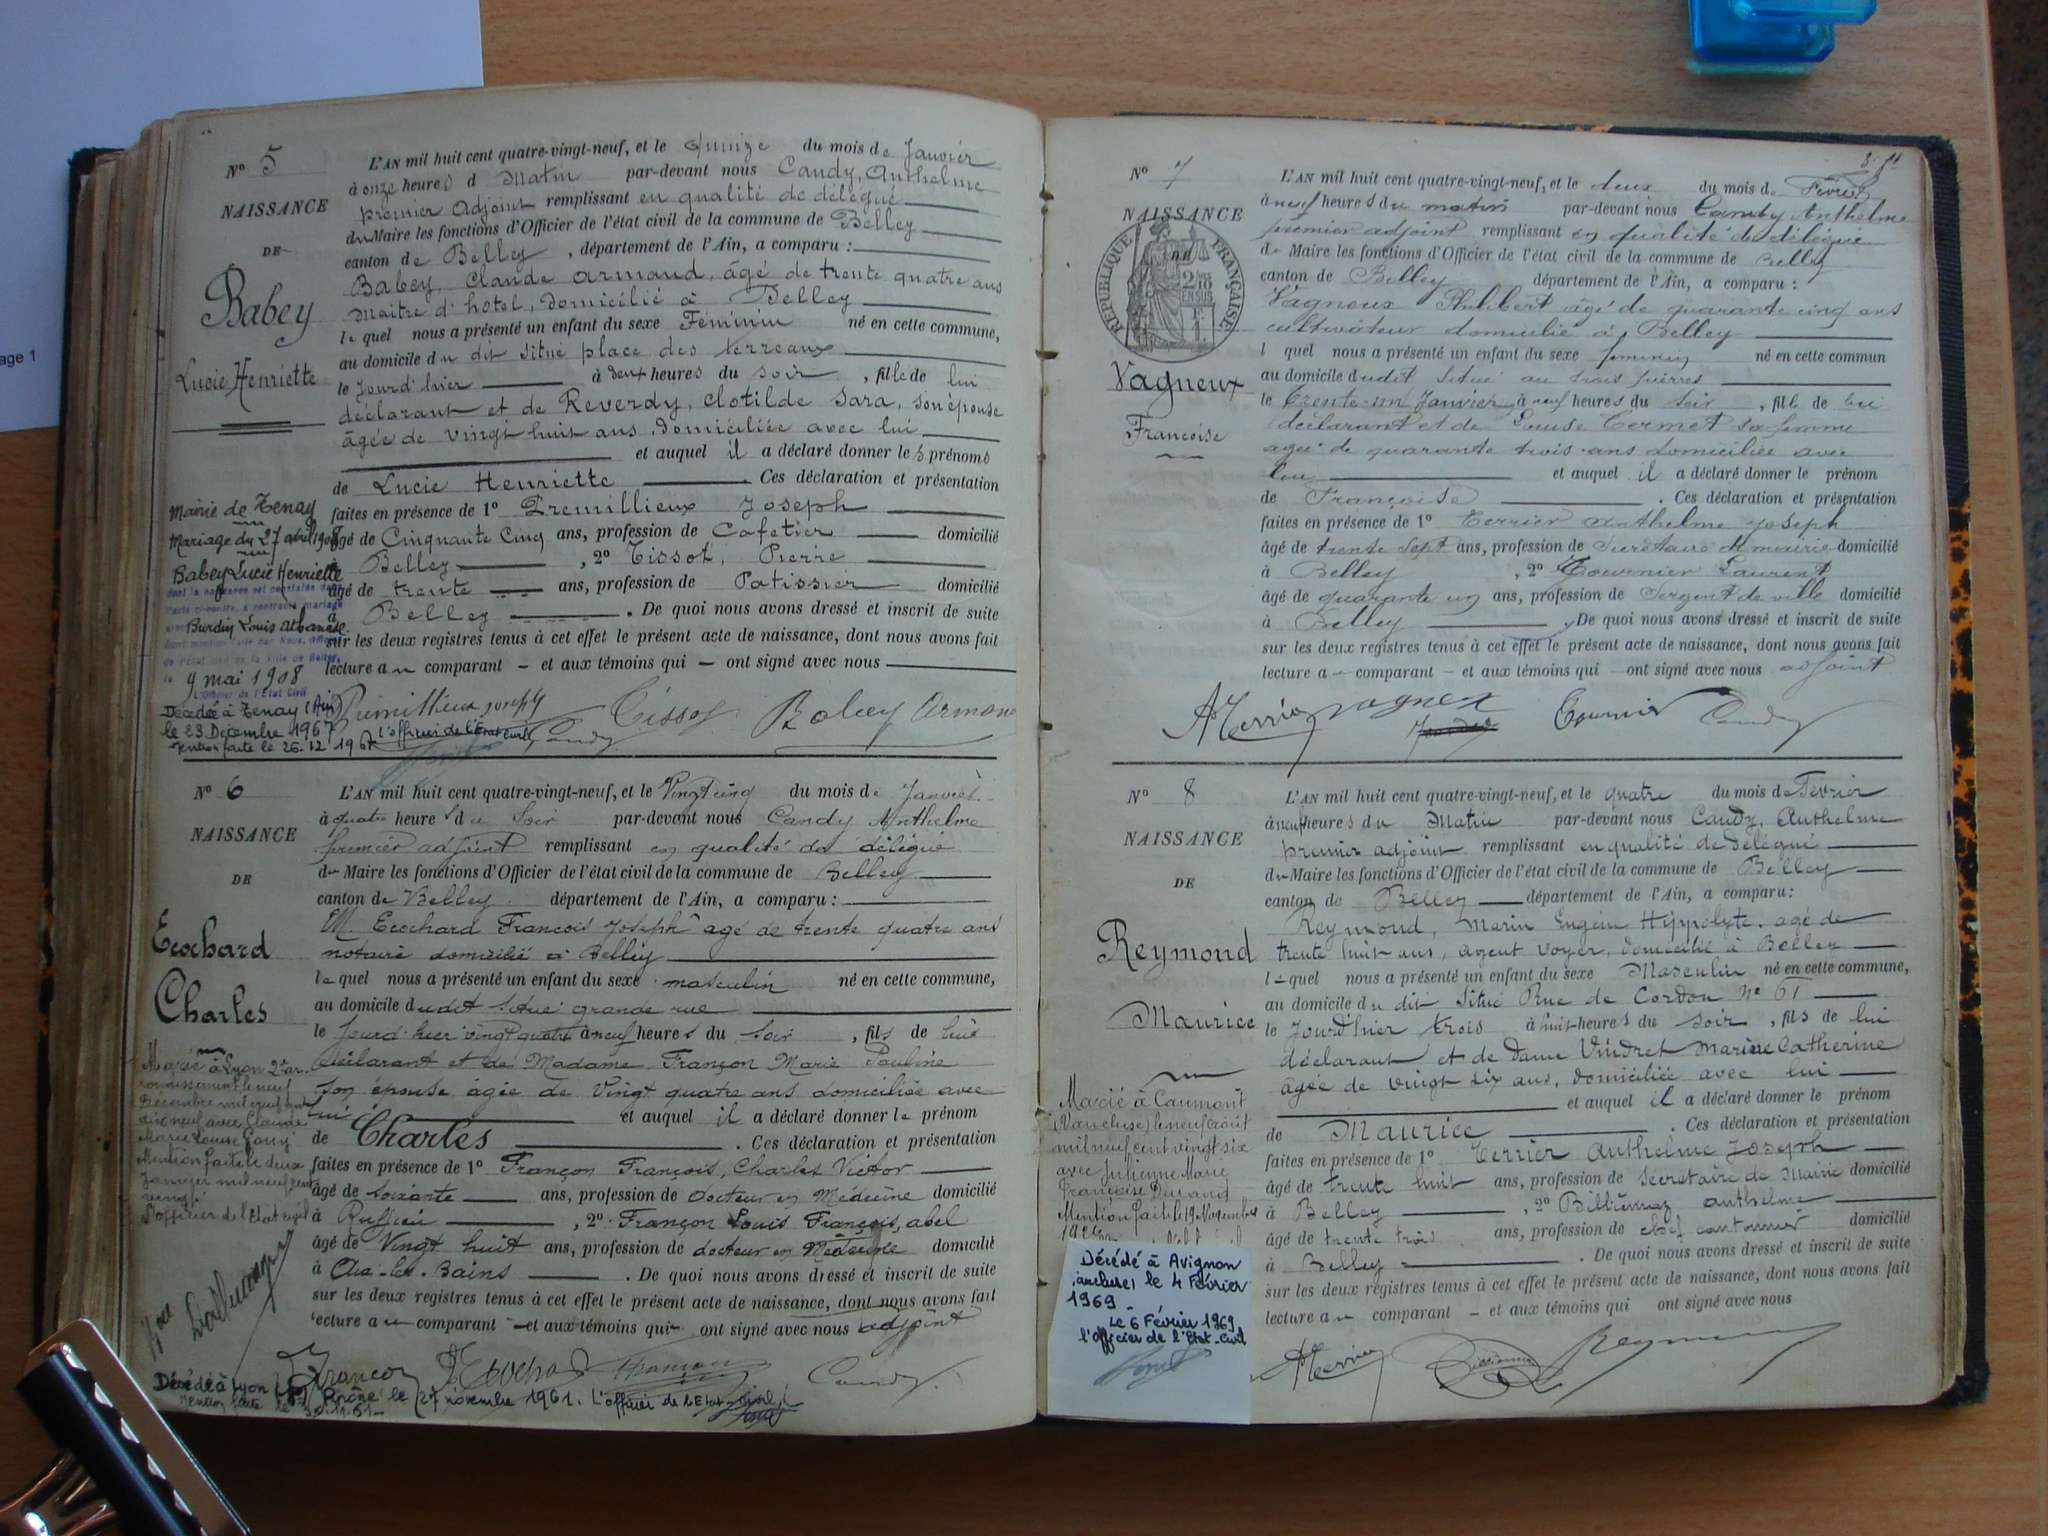 age 1
N° 5
NAISSANCE
DE
Babey
Lucie Henriette
L'AN mil huit cent quatre-vingt-neuf, et le Quinze du mois de Janvier
à onze heures d Matin par-devant nous Candy, Anthelme
premier Adjoint remplissant en qualité de délégué
du Maire les fonctions d'Officier de l'état civil de la commune de Belley
canton de Belley, département de l'Ain, a comparu :
Babey, Claude Armand, âgé de trente quatre ans
maître d'hotel, domicilié à Belley
lequel nous a présenté un enfant du sexe Féminin né en cette commune,
au domicile du dit situé place des terreaux
le Jourd'hier à deux heures du soir, fille de lui
déclarant et de Reverdy, Clotilde Sara, son épouse
âgée de vingt huit ans, domiciliée avec lui
et auquel il a déclaré donner les prénoms
de Lucie Henriette Ces déclaration et présentation
faites en présence de 1° Premillieux Joseph
âgé de Cinquante Cinq ans, profession de Cafetier domicilié
à Belley, 2° Tissot, Pierre
âgé de trente ans, profession de Patissier domicilié
à Belley. De quoi nous avons dressé et inscrit de suite
sur les deux registres tenus à cet effet le présent acte de naissance, dont nous avons fait
lecture au comparant et aux témoins qui ont signé avec nous
Premillieux Joseph Tissot Babey Armand
Candy
Mairie de Tenay
Mariage du 27 avril
Babey Lucie Henriette
dont la naissance est constatée dans
l'acte ci-contre, a contracté mariage
avec Burdin Louis
9 mai 1908
L'Officier de l'Etat Civil
Décédée à Tenay (Ain)
le 23 Décembre 1967
Mention faite le 26.12.1967 L'officier de l'Etat civil
N° 6
NAISSANCE
DE
Ecochard
Charles
L'AN mil huit cent quatre-vingt-neuf, et le Vingt cinq du mois de Janvier
à quatre heures du Soir par-devant nous Candy Anthelme
premier adjoint remplissant en qualité de délégué
du Maire les fonctions d'Officier de l'état civil de la commune de Belley
canton de Belley. département de l'Ain, a comparu :
M. Ecochard François Joseph âgé de trente quatre ans
notaire domicilié à Belley
lequel nous a présenté un enfant du sexe masculin né en cette commune,
au domicile dudit situé grande rue
le Jourd'hier vingt quatre à neuf heures du Soir, fils de lui
déclarant et de Madame Françon Marie Pauline
son épouse âgée de Vingt quatre ans domiciliée avec
lui et auquel il a déclaré donner le prénom
de Charles. Ces déclaration et présentation
faites en présence de 1° Françon François, Charles Victor
âgé de Soixante ans, profession de docteur en Médecine domicilié
à Ruffieu, 2° Françon Louis François, abel
âgé de Vingt huit ans, profession de docteur en Médecine domicilié
à Aix-les-Bains. De quoi nous avons dressé et inscrit de suite
sur les deux registres tenus à cet effet le présent acte de naissance, dont nous avons fait
lecture au comparant et aux témoins qui ont signé avec nous adjoint
Françon Ecochard Françon Candy
Marié à Lyon 2e ar-
rondissement le neuf
Décembre mil neuf cent
dix neuf avec Claude
Marie Louise
Mention faite le deux
Janvier mil neuf cent
vingt
L'officier de l'Etat civil
Décédé à Lyon Rhône le 27 novembre 1961. L'officier de l'Etat civil
Mention faite le 30.11.61
N° 7
NAISSANCE
RÉPUBLIQUE FRANÇAISE
Vagneux
Françoise
L'AN mil huit cent quatre-vingt-neuf, et le deux du mois de Février
à neuf heures du matin par-devant nous Candy Anthelme
premier adjoint remplissant en qualité de délégué
de Maire les fonctions d'Officier de l'état civil de la commune de Belley
canton de Belley département de l'Ain, a comparu :
Vagneux Philibert âgé de quarante cinq ans
cultivateur domicilié à Belley
l quel nous a présenté un enfant du sexe feminin né en cette commun
au domicile dudit situé au trois
le trente-un Janvier à neuf heures du soir, fille de lui
déclarant et de Louise Termet sa femme
agée de quarante trois ans domiciliée avec
lui et auquel il a déclaré donner le prénom
de Françoise. Ces déclaration et présentation
faites en présence de 1° Terrier Anthelme Joseph
âgé de trente sept ans, profession de Secretaire de mairie domicilié
à Belley, 2° Tournier Laurent
âgé de quarante un ans, profession de Sergent de ville domicilié
à Belley. De quoi nous avons dressé et inscrit de suite
sur les deux registres tenus à cet effet le présent acte de naissance, dont nous avons fait
lecture au comparant et aux témoins qui ont signé avec nous adjoint
A Terrier Vagnex Tournier Candy
N° 8
NAISSANCE
DE
Reymond
Maurice
L'AN mil huit cent quatre-vingt-neuf, et le quatre du mois de Février
à neuf heures du Matin par-devant nous Candy, Anthelme
premier adjoint remplissant en qualité de délégué
du Maire les fonctions d'Officier de l'état civil de la commune de Belley
canton de Belley département de l'Ain, a comparu :
Reymond, Marin Eugène Hyppolyte, agé de
trente huit ans, agent voyer, domicilié à Belley
lequel nous a présenté un enfant du sexe Masculin né en cette commune,
au domicile du dit situé Rue de Cordon N° 61
le Jourd'hier trois à huit heures du soir, fils de lui
déclarant et de Dame Vindret Marine Catherine
âgée de vingt six ans, domiciliée avec lui
et auquel il a déclaré donner le prénom
de Maurice. Ces déclaration et présentation
faites en présence de 1° Terrier Anthelme Joseph
âgé de trente huit ans, profession de Secretaire de Mairie domicilié
à Belley, 2° Billiemaz anthelme
âgé de trente trois ans, profession de chef cantonnier domicilié
à Belley. De quoi nous avons dressé et inscrit de suite
sur les deux registres tenus à cet effet le présent acte de naissance, dont nous avons fait
lecture au comparant et aux témoins qui ont signé avec nous
A Terrier Reymond
Marié à Caumont
(Vaucluse) le neuf août
mil neuf cent vingt six
avec Julienne Marie
Françoise Durand
Mention faite le 19 Novembre
Décédé à Avignon
(Vaucluse) le 4 Février
1969
Le 6 Février 1969
l'Officier de l'Etat-Civil